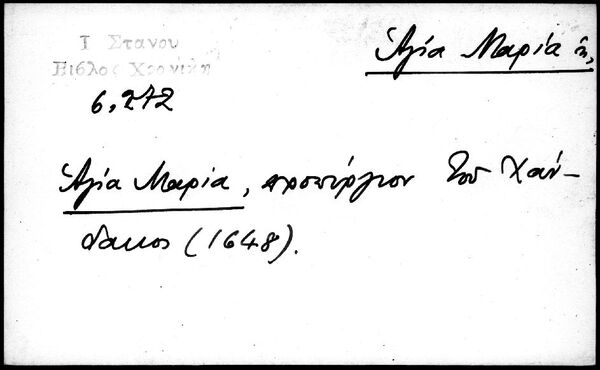 Ι Στανου
Βιβλος Χρονικη
6, 272
Ἁγία Μαρία ἡ,
Ἁγία Μαρία, προπύργιον τοῦ Χάν-
δακος (1648).